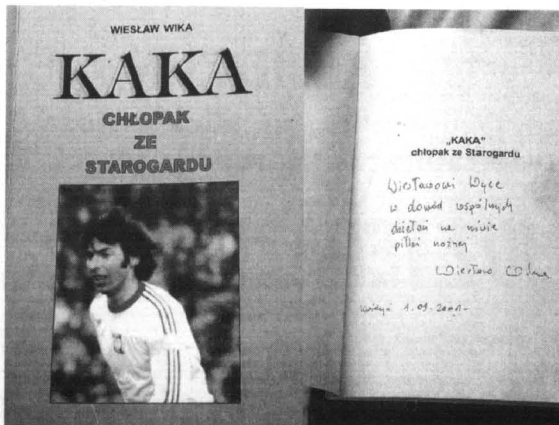 WIESŁAW WIKA
KAKA
CHŁOPAK
ZE
STAROGARDU
„KAKA"
chłopak ze Starogardu
Wiesławowi Wyce
w dowód wspólnych
działań na niwie
piłki nożnej
Wiesław Wika
1.09.2001